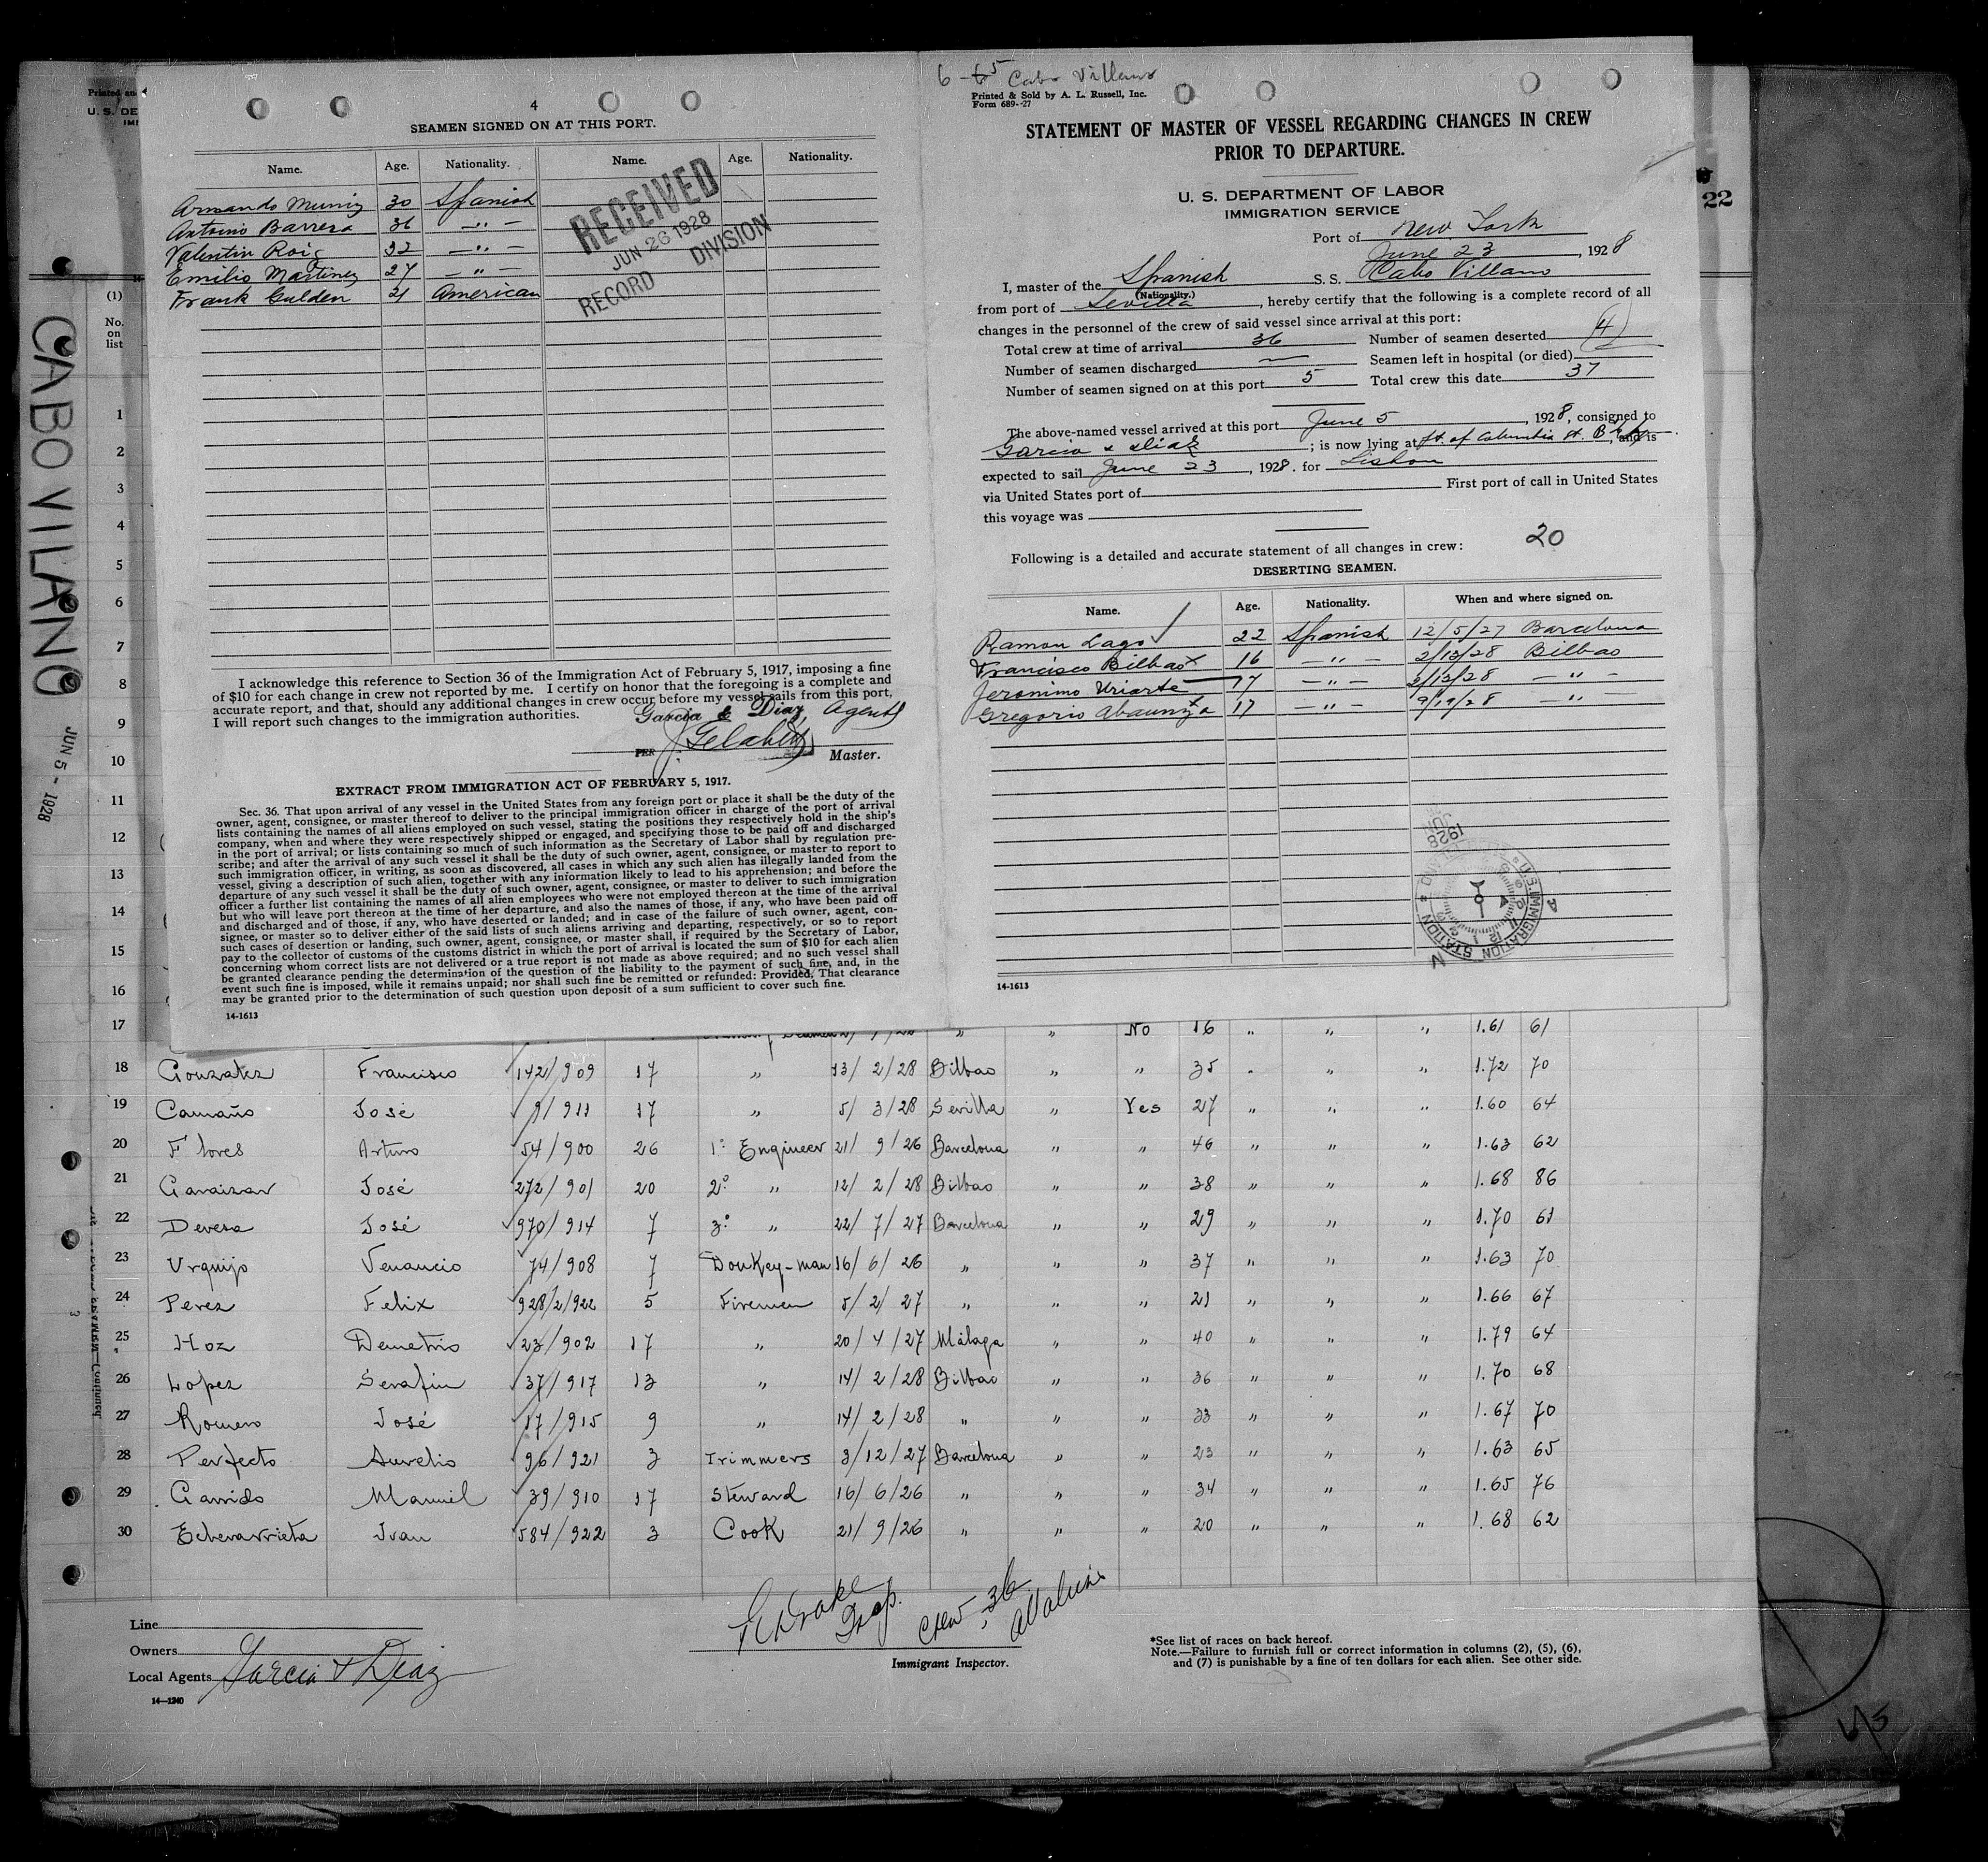 4
SEAMEN SIGNED ON AT THIS PORT.
Name. Age. Nationality. Name. Age. Nationality.
Armando Muniz 30 Spanish
Antonio Barrera 36 — " —
Valentin Roig 32 — " —
Emilio Martinez 27 — " —
Frank Gulden 21 American
RECEIVED
JUN 26 1928
RECORD DIVISION
I acknowledge this reference to Section 36 of the Immigration Act of February 5, 1917, imposing a fine
of $10 for each change in crew not reported by me. I certify on honor that the foregoing is a complete and
accurate report, and that, should any additional changes in crew occur before my vessel sails from this port,
I will report such changes to the immigration authorities.
Garcia & Diaz, Agents
PER Master.
EXTRACT FROM IMMIGRATION ACT OF FEBRUARY 5, 1917.
Sec. 36. That upon arrival of any vessel in the United States from any foreign port or place it shall be the duty of the
owner, agent, consignee, or master thereof to deliver to the principal immigration officer in charge of the port of arrival
lists containing the names of all aliens employed on such vessel, stating the positions they respectively hold in the ship's
company, when and where they were respectively shipped or engaged, and specifying those to be paid off and discharged
in the port of arrival; or lists containing so much of such information as the Secretary of Labor shall by regulation pre-
scribe; and after the arrival of any such vessel it shall be the duty of such owner, agent, consignee, or master to report to
such immigration officer, in writing, as soon as discovered, all cases in which any such alien has illegally landed from the
vessel, giving a description of such alien, together with any information likely to lead to his apprehension; and before the
departure of any such vessel it shall be the duty of such owner, agent, consignee, or master to deliver to such immigration
officer a further list containing the names of all alien employees who were not employed thereon at the time of the arrival
but who will leave port thereon at the time of her departure, and also the names of those, if any, who have been paid off
and discharged and of those, if any, who have deserted or landed; and in case of the failure of such owner, agent, con-
signee, or master so to deliver either of the said lists of such aliens arriving and departing, respectively, or so to report
such cases of desertion or landing, such owner, agent, consignee, or master shall, if required by the Secretary of Labor,
pay to the collector of customs of the customs district in which the port of arrival is located the sum of $10 for each alien
concerning whom correct lists are not delivered or a true report is not made as above required; and no such vessel shall
be granted clearance pending the determination of the question of the liability to the payment of such fine, and, in the
event such fine is imposed, while it remains unpaid; nor shall such fine be remitted or refunded: Provided, That clearance
may be granted prior to the determination of such question upon deposit of a sum sufficient to cover such fine.
14-1613
Cabo Villano
Printed & Sold by A. L. Russell, Inc.
Form 689--27
STATEMENT OF MASTER OF VESSEL REGARDING CHANGES IN CREW
PRIOR TO DEPARTURE.
U. S. DEPARTMENT OF LABOR
IMMIGRATION SERVICE
Port of New York
June 23, 1928
I, master of the Spanish S. S. Cabo Villano
(Nationality.)
from port of Sevilla, hereby certify that the following is a complete record of all
changes in the personnel of the crew of said vessel since arrival at this port:
Total crew at time of arrival 36 Number of seamen deserted 4
Number of seamen discharged — Seamen left in hospital (or died)
Number of seamen signed on at this port 5 Total crew this date 37
The above-named vessel arrived at this port June 5, 1928, consigned to
Garcia & Diaz; is now lying at ft. of Columbia st. Bklyn, and is
expected to sail June 23, 1928. for Lisbon
via United States port of First port of call in United States
this voyage was
20
Following is a detailed and accurate statement of all changes in crew:
DESERTING SEAMEN.
Name. Age. Nationality. When and where signed on.
Ramon Lago 22 Spanish 12/5/27 Barcelona
Francisco Bilbao 16 — " — 2/13/28 Bilbao
Jeronimo Uriarte 17 — " — 2/13/28 — " —
Gregorio Abaunza 17 — " — — " —
U.S. IMMIGRATION STATION
JUN
1928
14-1613
U. S. DE
22
(1)
No.
on
list
CABO VILANO
JUN 5 - 1928
1
2
3
4
5
6
7
8
9
10
11
12
13
14
15
16
17 " " No 16 " " " 1.61 61
18 Gonzalez Francisco 142/909 17 " 13/2/28 Bilbao " " 35 " " " 1.72 70
19 Camaño José 9/911 17 " 5/3/28 Sevilla " Yes 27 " " " 1.60 64
20 Flores Arturo 54/900 26 1º Engineer 21/9/26 Barcelona " " 46 " " " 1.63 62
21 Garaizar José 272/901 20 2º " 12/2/28 Bilbao " " 38 " " " 1.68 86
22 Devesa José 970/914 7 3º " 22/7/27 Barcelona " " 29 " " " 1.70 61
23 Urquijo Venancio 74/908 7 Donkey-man 16/6/26 " " " 37 " " " 1.63 70
24 Perez Felix 928/2/922 5 Firemen 5/2/27 " " " 21 " " " 1.66 67
25 Hoz Demetrio 23/902 17 " 20/4/27 Málaga " " 40 " " " 1.79 64
26 Lopez Serafin 37/917 13 " 14/2/28 Bilbao " " 36 " " " 1.70 68
27 Romero José 17/915 9 " 14/2/28 " " " 33 " " " 1.67 70
28 Perfecto Aurelio 96/921 3 Trimmers 3/12/27 Barcelona " " 23 " " " 1.63 65
29 Garrido Manuel 39/910 17 Steward 16/6/26 " " " 34 " " " 1.65 76
30 Echevarrieta Juan 584/922 3 Cook 21/9/26 " " " 20 " " " 1.68 62
Line
Owners
Local Agents Garcia & Diaz
14—1240
Drake Insp. Crew, 36
Immigrant Inspector.
*See list of races on back hereof.
Note.—Failure to furnish full or correct information in columns (2), (5), (6),
and (7) is punishable by a fine of ten dollars for each alien. See other side.